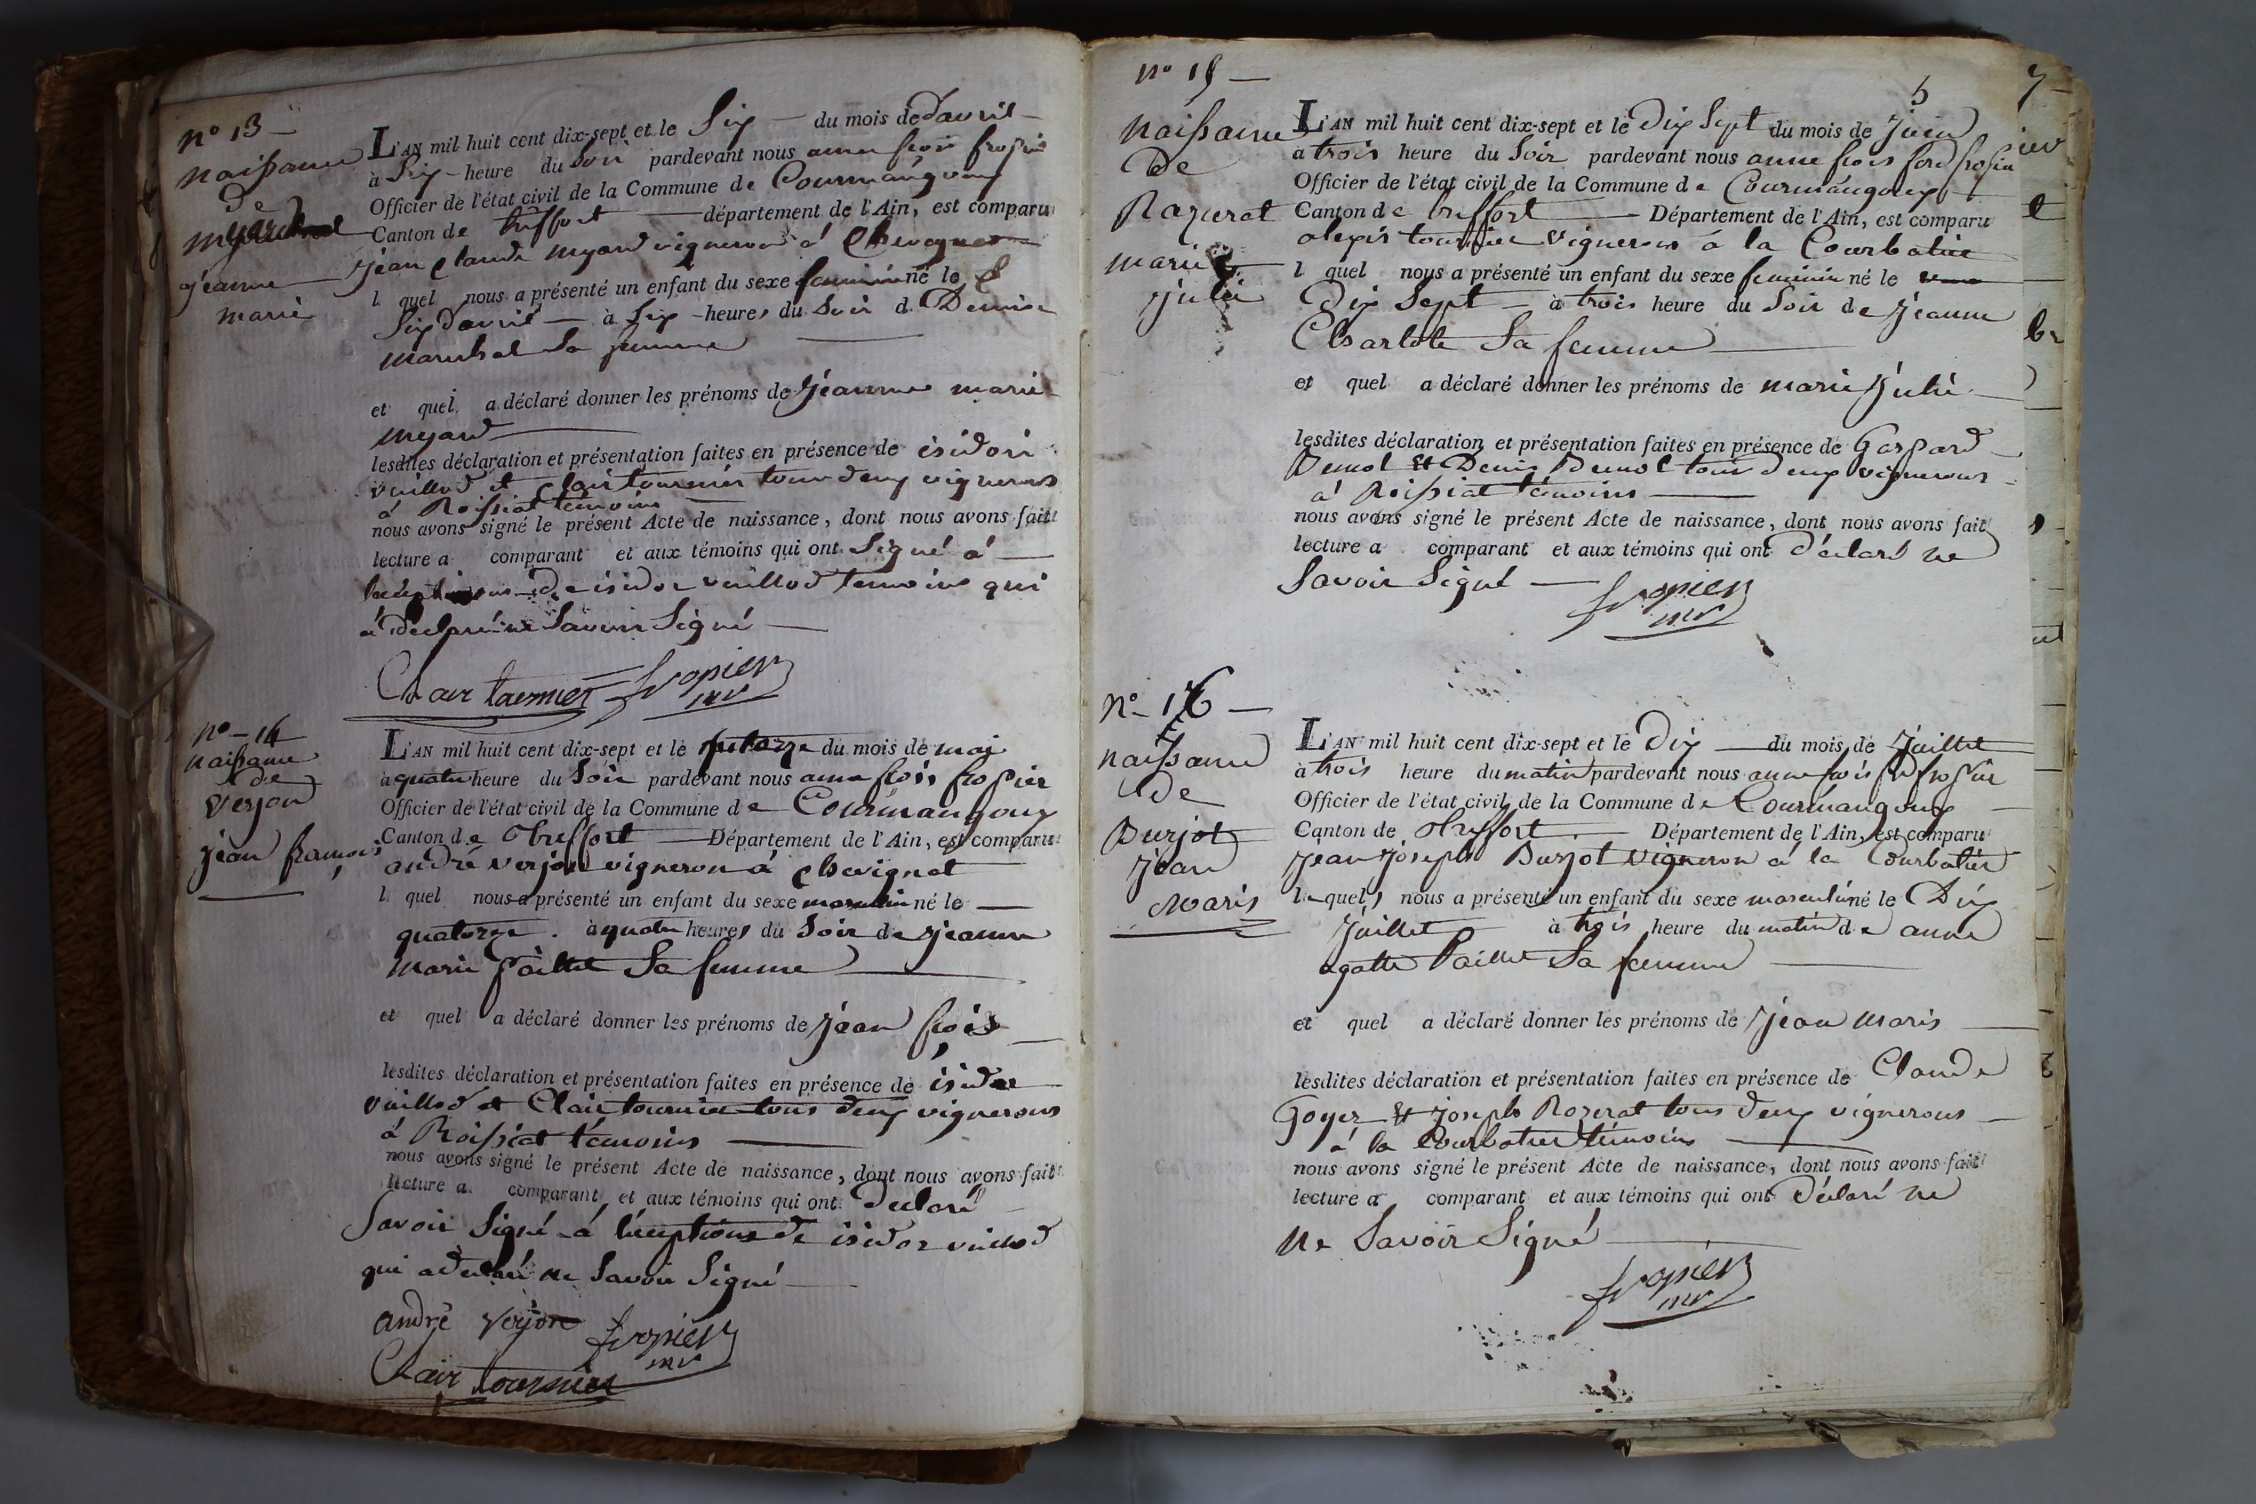 n° 13 —
naissance
de
myard
jeanne
marie
L'AN mil huit cent dix-sept et le Six — du mois de d'avril —
à Six - heure du Soir pardevant nous anne frois fropier
Officier de l'état civil de la Commune de Courmangoux
Canton de treffort — département de l'Ain, est comparu
jean claude myard vigneron à Chevignat
l quel nous a présenté un enfant du sexe feminin né le
Six d'avril — à Six - heures du Soir d Denise
marechal Sa femme —
et quel a déclaré donner les prénoms de jeanne marie
myard —
lesdites déclaration et présentation faites en présence de isidore
vuillod et Clair tournier tous deux vignerons
à Roissiat témoins
nous avons signé le présent Acte de naissance, dont nous avons fait
lecture a comparant et aux témoins qui ont Signé à —
de isidor vuillod temoins qui
a déclaré ne Savoir Signé —
Clair tournier fropier
mr
n° — 14
naissance
de
Verjon
jean francois
L'AN mil huit cent dix-sept et le quatorze du mois de mai
à quatre heure du Soir pardevant nous anne frois fropier
Officier de l'état civil de la Commune de Courmangoux
Canton de treffort — Département de l'Ain, est comparu
andré verjon vigneron à Chevignat
l quel nous a présenté un enfant du sexe masculin né le —
quatorze . à quatre heures du Soir de jeanne
marie paillet Sa femme —
et quel a déclaré donner les prénoms de jean frois —
lesdites déclaration et présentation faites en présence de isidor
vuillod et Clair tournier tous deux vignerons
à Roissiat témoins —
nous avons signé le présent Acte de naissance, dont nous avons fait
lecture a comparant et aux témoins qui ont déclaré
Savoir Signé à l'éxeptions de isidor vuillod
qui a déclaré ne Savoir Signé —
andré verjon fropier
mr
Clair tournier
5 7
n° 15 —
naissance
de
Razurat
marie
julie
L'AN mil huit cent dix-sept et le dix Sept du mois de juin
à trois heure du Soir pardevant nous anne frois ferd fropier
Officier de l'état civil de la Commune de Courmangoux
Canton de treffort — Département de l'Ain, est comparu
alexis tournier vigneron à la Courbatière
l quel nous a présenté un enfant du sexe feminin né le
dix Sept — à trois heure du Soir de jeanne
Charlote Sa femme —
et quel a déclaré donner les prénoms de marie julie —
lesdites déclaration et présentation faites en présence de Gaspard
Demol et Denis Demol tous deux vignerons
à Roissiat témoins —
nous avons signé le présent Acte de naissance, dont nous avons fait
lecture a comparant et aux témoins qui ont déclaré ne
Savoir Signé — fropier
mr
n° 16 —
naissance
de
Burjot
jean
maris
L'AN mil huit cent dix-sept et le dix — du mois de juillet
à trois heure du matin pardevant nous anne frois fd fropier
Officier de l'état civil de la Commune de Courmangoux
Canton de treffort — Département de l'Ain, est comparu
jean joseph Burjot vigneron à la Courbatière
le quel nous a présenté un enfant du sexe masculin né le Dix
juillet à trois heure du matin de anne
agathe Paillet Sa femme —
et quel a déclaré donner les prénoms de jean maris —
lesdites déclaration et présentation faites en présence de Claude
Goyer et joseph Rozerat tous deux vignerons —
à la Courbatier témoins —
nous avons signé le présent Acte de naissance, dont nous avons fait
lecture a comparant et aux témoins qui ont déclaré ne
ne Savoir Signé —
fropier
mr